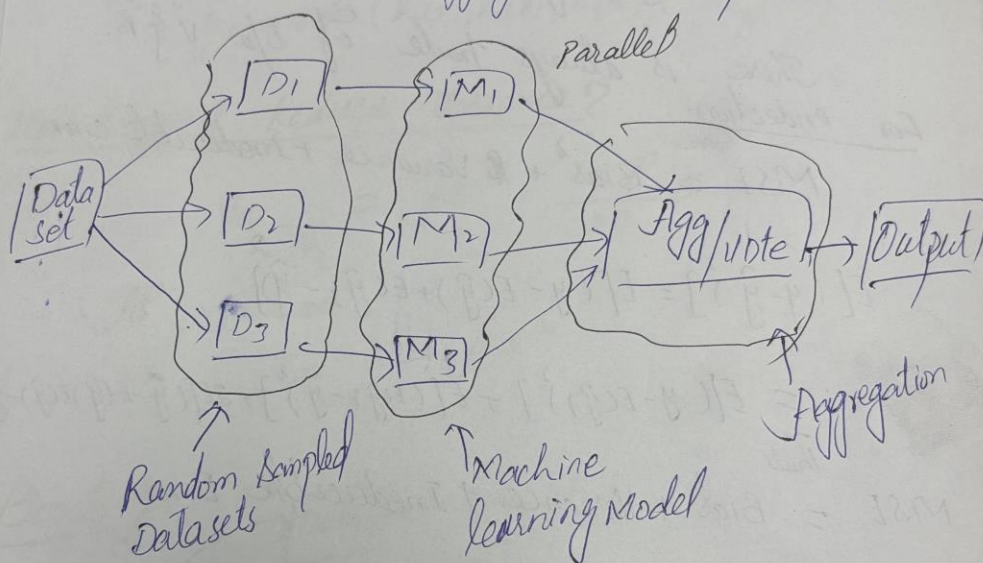 Parallel
D1
M1
Data
set
D2
M2
Agg/vote
Output
D3
M3
Aggregation
Random Sampled
Datasets
Machine
learning Model